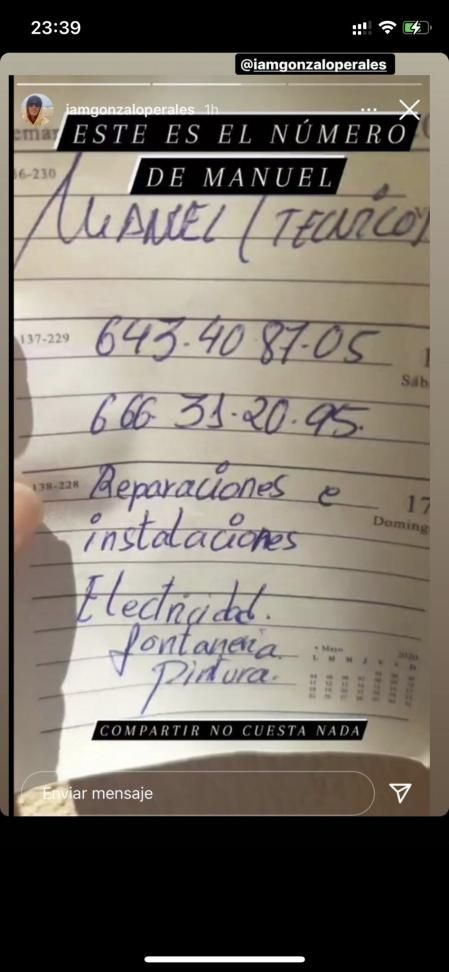 23:39
@iamgonzaloperales
iamgonzaloperales 1h
ESTE ES EL NÚMERO
DE MANUEL
6-230
MANUEL (TECNICO)
137-229
643.40 87.05
Sáb
666 31.20.95.
138-228
Reparaciones e
17
Doming
instalaciones
Electricidad.
fontaneria.
Mayo 2020
L M M J V S D
pintura.
COMPARTIR NO CUESTA NADA
Enviar mensaje